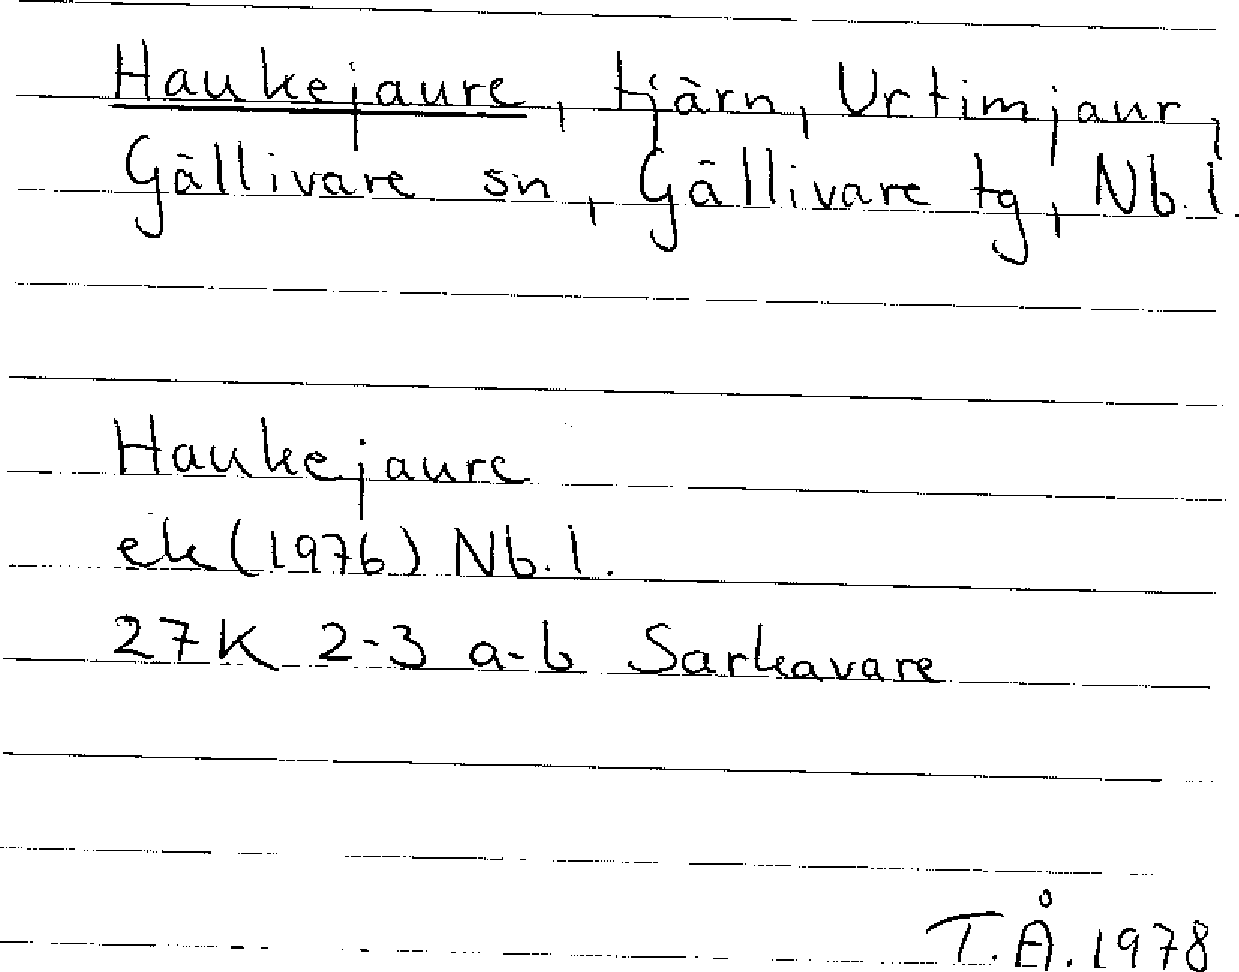 Haukejaure, tjärn, Urtimjaur,
Gällivare sn, Gällivare tg, Nb. l.
Haukejaure
ek (1976) Nb. l.
27K 2-3 a-b Sarkavare
T.Å. 1978